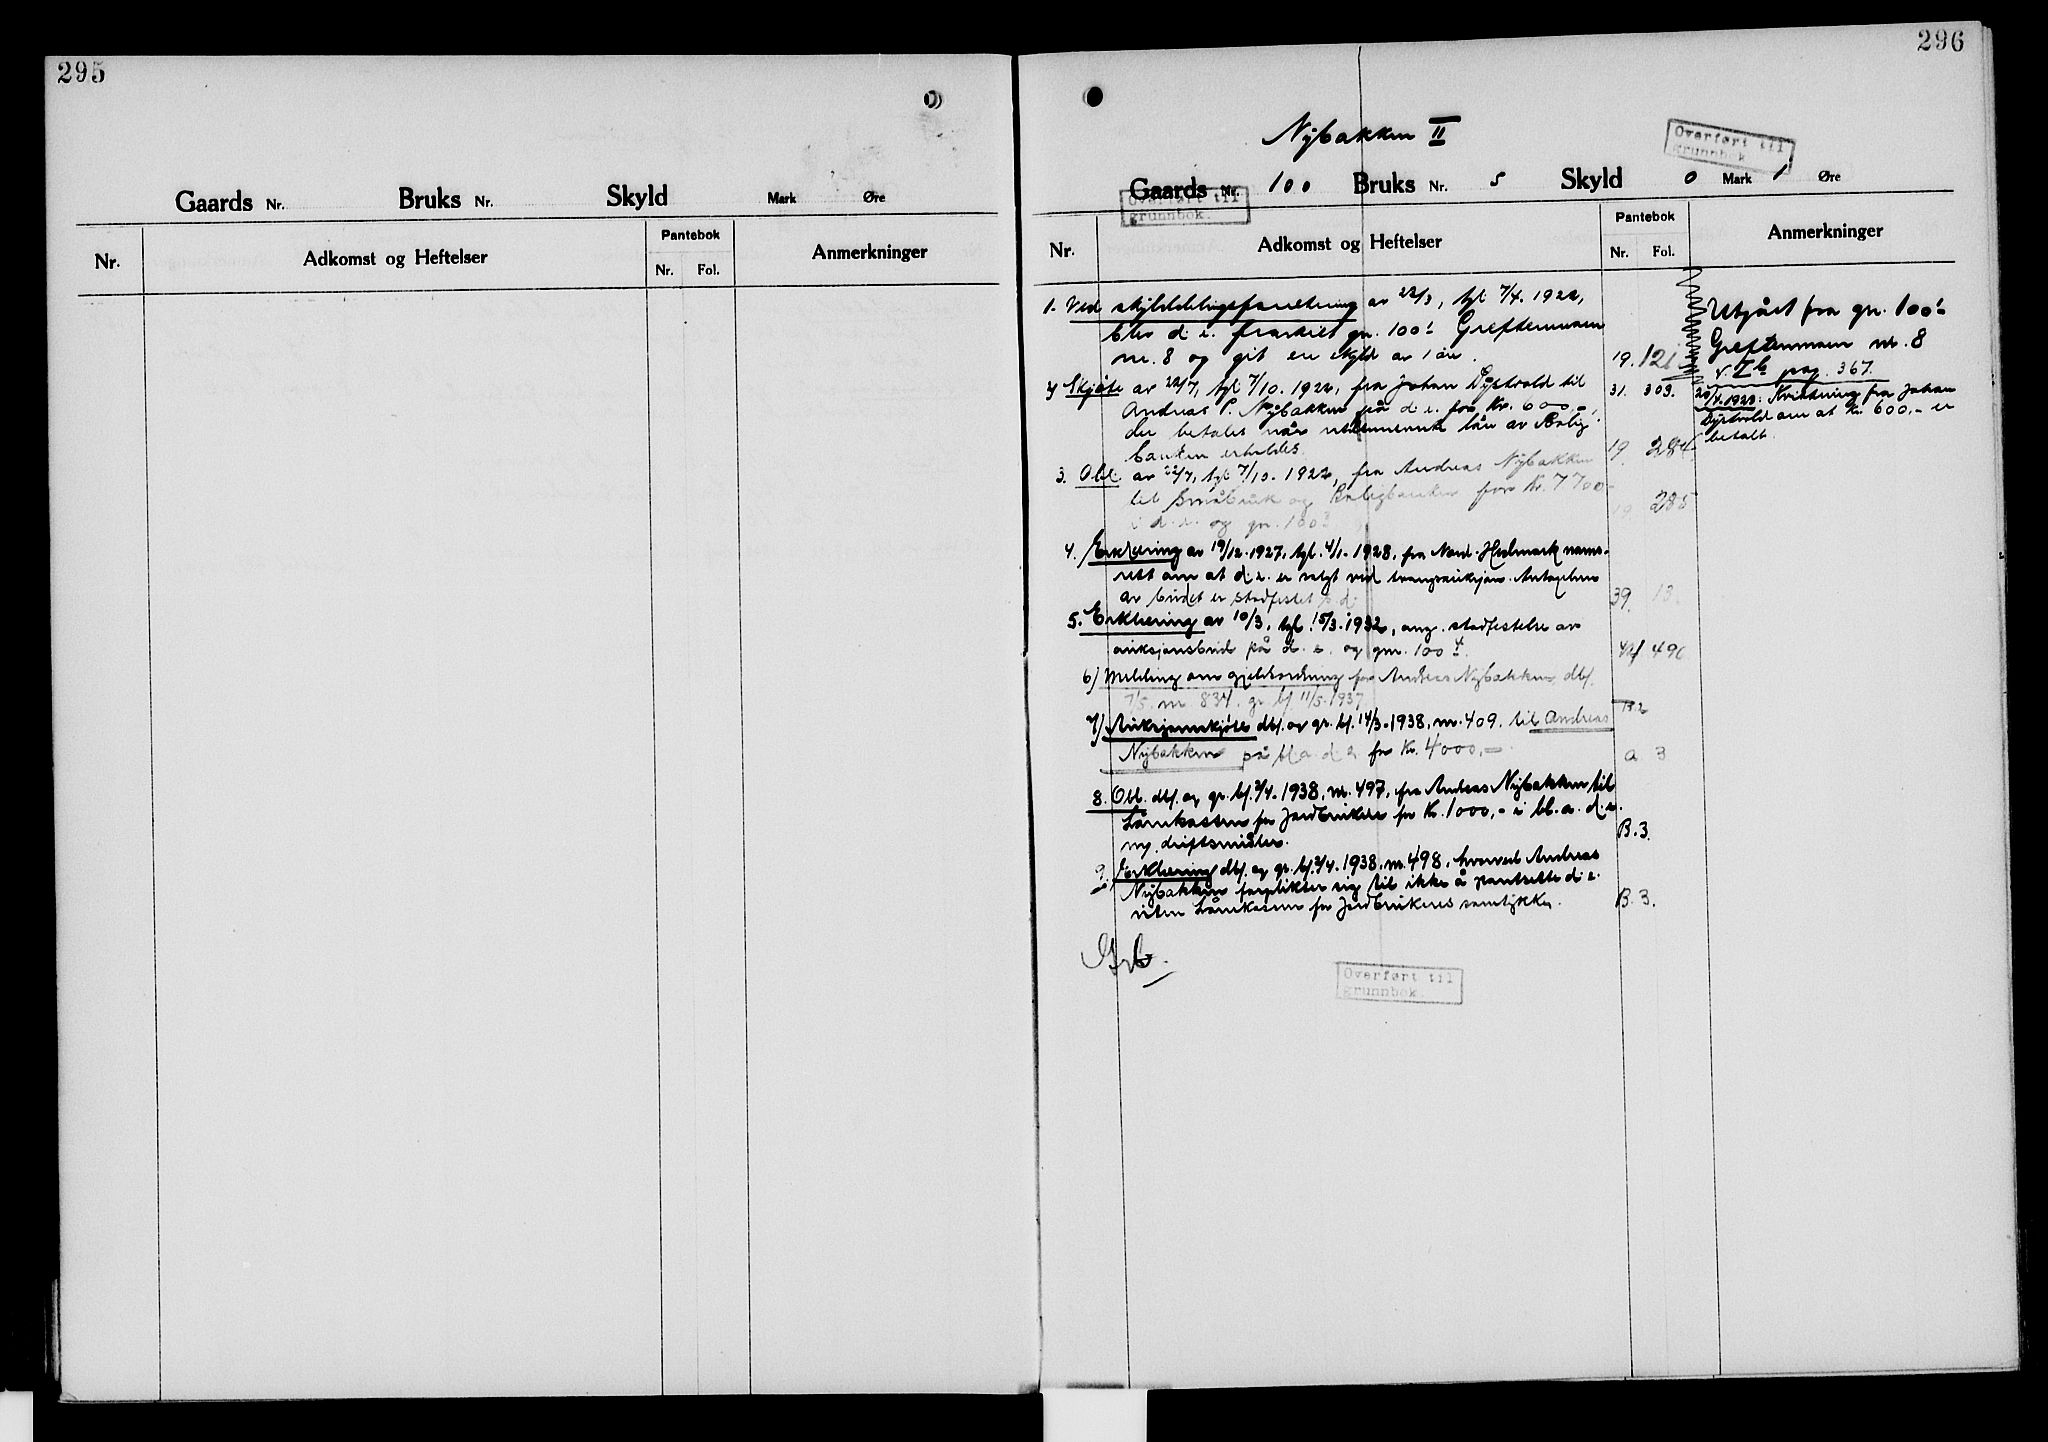 295
Gaards Nr. Bruks Nr. Skyld Mark Øre
Nr. Adkomst og Heftelser Pantebok Nr. Fol. Anmerkninger
296
Nybakken II
Overført til
grunnbok.
Gaards Nr. 100 Bruks Nr. 5 Skyld 0 Mark 1 Øre
Overført til
grunnbok.
Nr. Adkomst og Heftelser Pantebok Nr. Fol. Anmerkninger
1. Ved skylddelingsforretning av 22/3, tgl. 7/4. 1922,
blev d. e. fraskilt gn. 100 Greftenmoen
nr. 8 og git en skyld av 1 øre. 19. 121
2) Skjøte av 22/7, tgl. 7/10. 1922, fra Johan Dystvold til 31. 303.
Andreas P. Nybakken på d. e. for kr. 600,-,
der betales når lån av Bolig-
banken erholdes. 19. 284
3. Obl. av 22/7, tgl. 7/10. 1922, fra Andreas Nybakken
til Småbruk og Boligbanken for kr. 7700
i d. e. og gn. 100 19. 285
4. Erklæring av 19/12. 1927, tgl. 4/1. 1928, fra Nord-Hedmark nams-
rett om at d. e. er solgt ved tvangsauksjon. Antagelsen
av budet er stadfestet s. d. 39. 13.
5. Erklæring av 10/3, tgl. 15/3. 1932, ang. stadfestelse av
auksjonsbud på d. e. og gnr. 100 4. 490
6) Melding om gjeldsordning for Andreas Nybakken, dbf.
7/5. nr. 834. gr. bf. 11/5. 1937
7) Auksjonsskjøte dbf. og gr. bf. 14/3. 1938, nr. 409. til Andreas
Nybakken på bl. a. d. e. for kr. 4000,- a 3
8. Obl. dbf. og gr. bf. 2/4. 1938, nr. 497, fra Andreas Nybakken til
Lånekassen for Jordbrukere for kr. 1000,- i bl. a. d. e.
m. driftsmidler. B. 3.
9. Erklæring dbf. og gr. bf. 2/4. 1938, nr. 498, hvorved Andreas
Nybakken forplikter sig til ikke å pantsette d. e.
uten Lånekassen for Jordbrukeres samtykke. B. 3.
Utgått fra gn. 100
Greftenmoen nr. 8
v. I b pag. 367.
1923: Kvittering fra Johan
Dystvold om at kr. 600,- er
betalt.
Overført til
grunnbok.